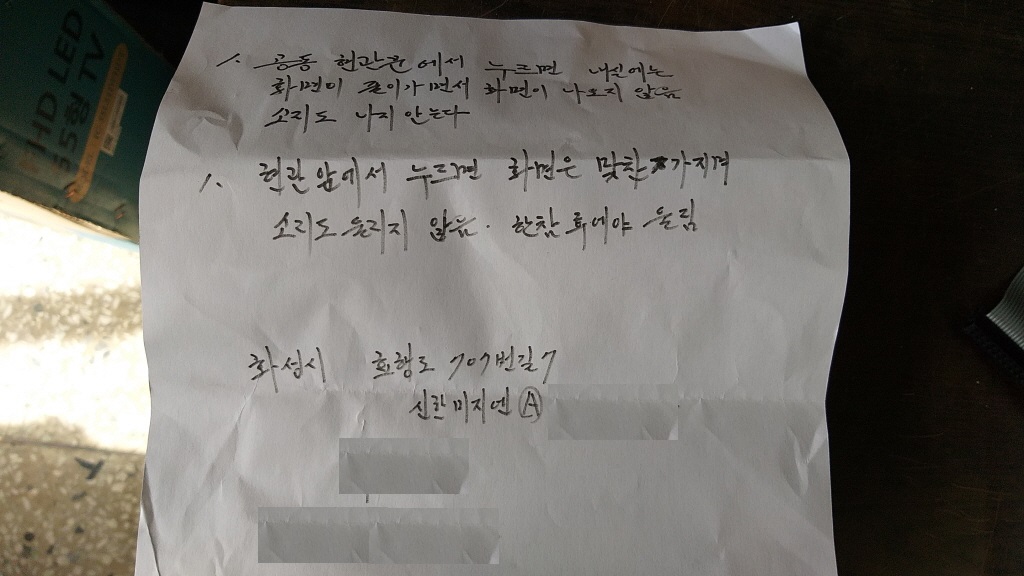 HD LED
55형 TV
1. 공동 현관에서 누르면 내실에는
화면이 들어가면서 화면이 나오지 않음
소리도 나지 안는다
1. 현관앞에서 누르면 화면은 맞찬가지며
소리도 울리지 않음. 한참 후에야 울림
화성시 효행로 707번길7
신한미지엔 Ⓐ